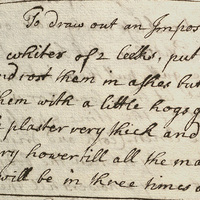 To draw out an Impos
whiter of 2 leeks, put
nd rost them in ashes but
hem with a little hogs g
plaster very thick and
ry hower till all the ma
will be in three times d